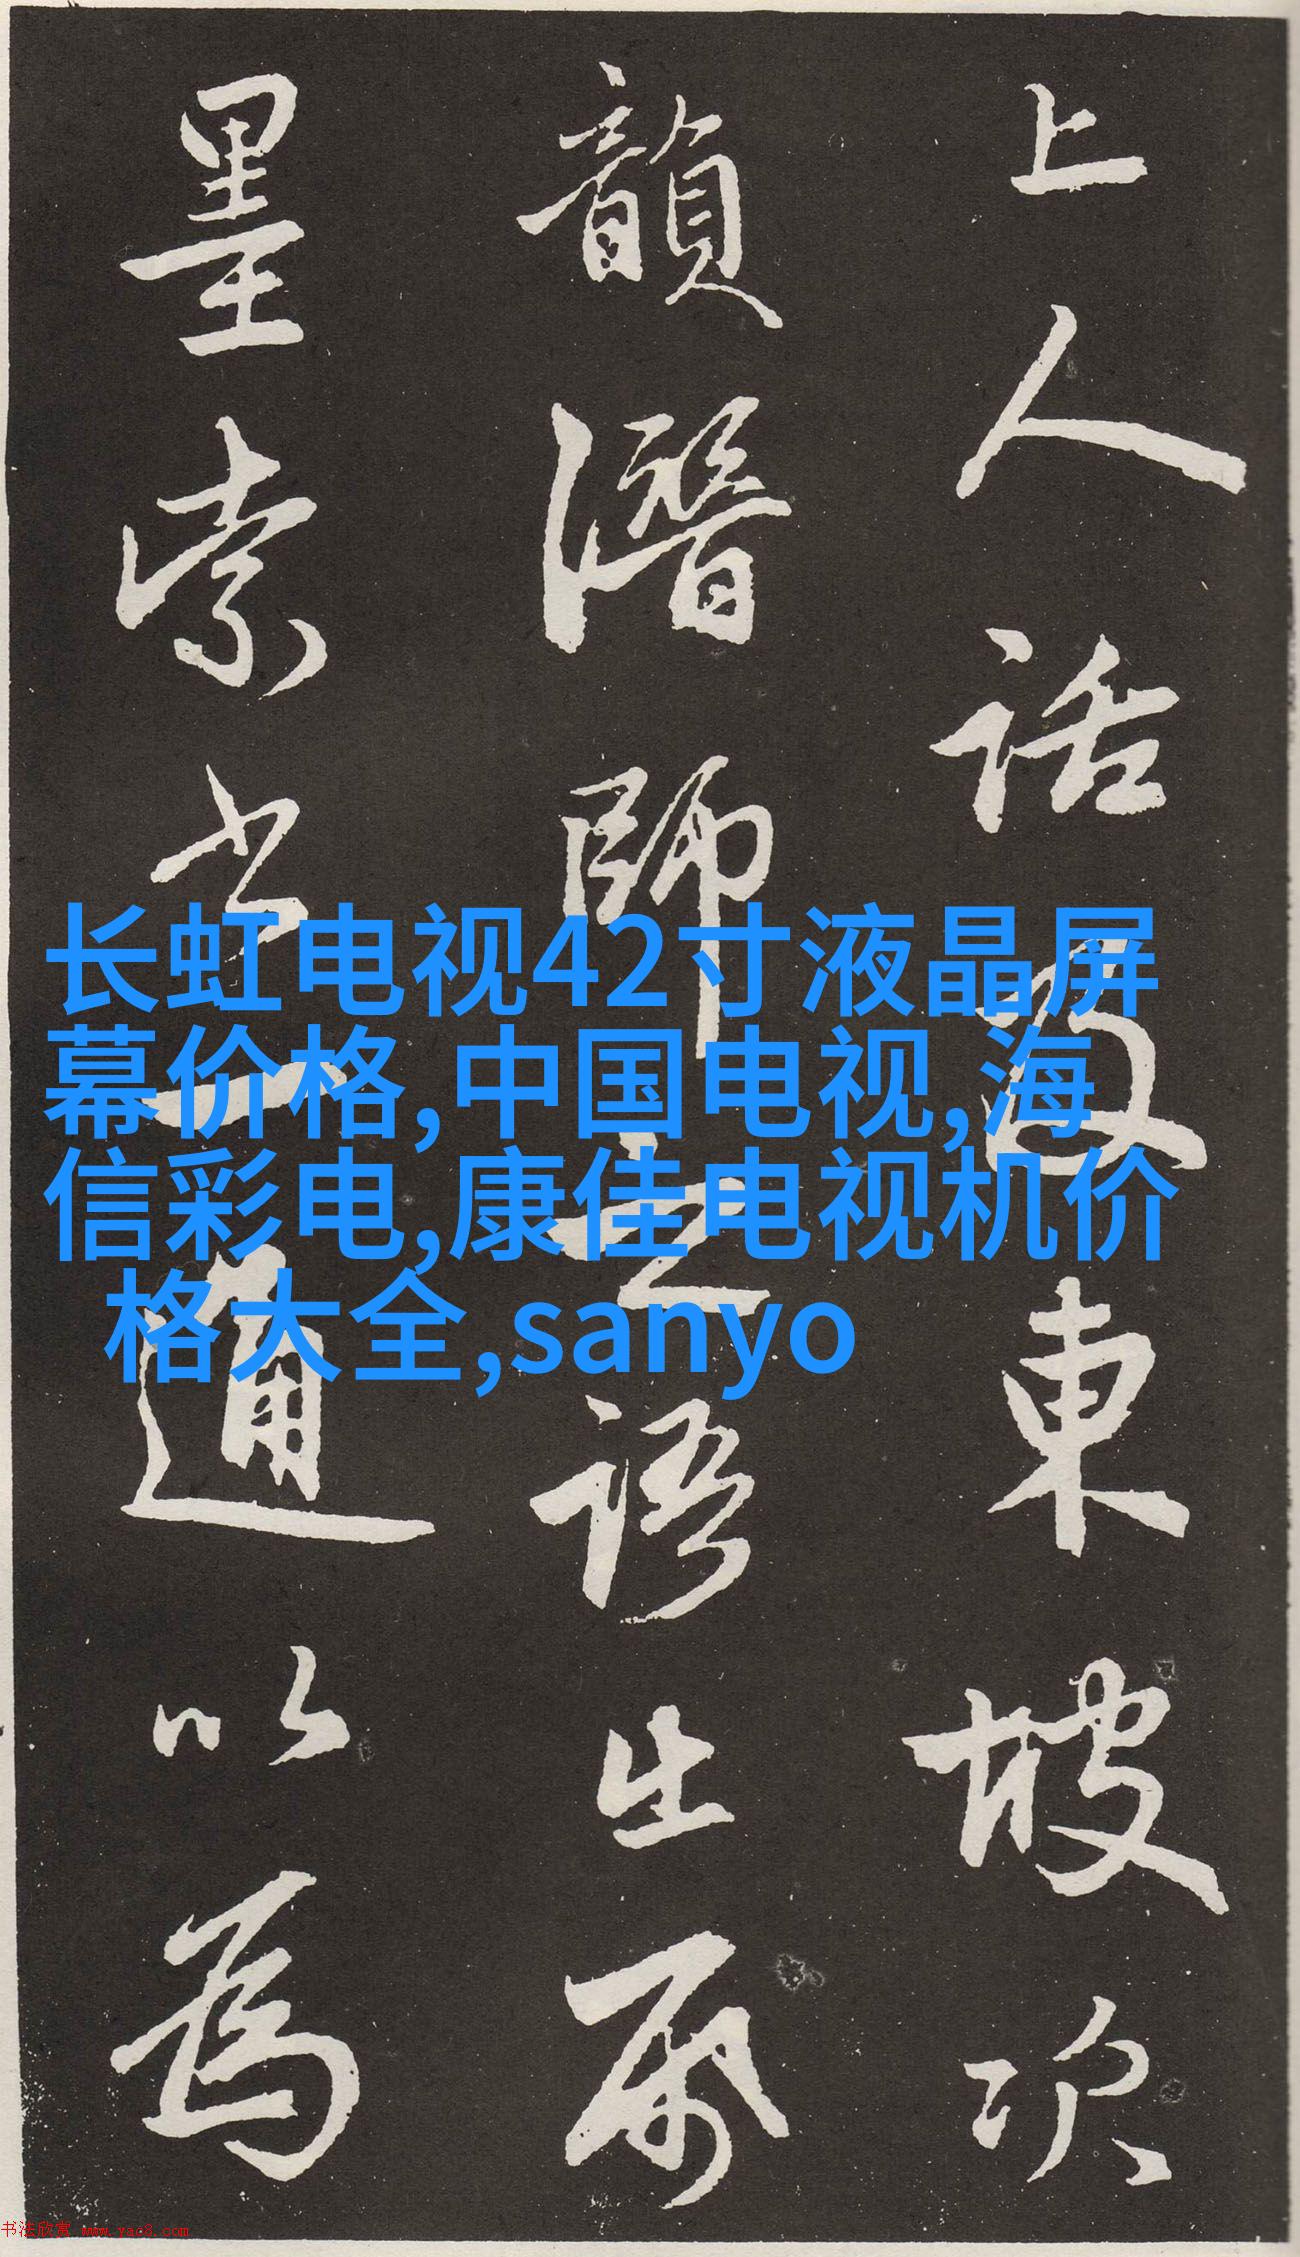 上人話及東坡次
韻潛師之語出帋
墨索書一通以為
长虹电视42寸液晶屏
幕价格,中国电视,海
信彩电,康佳电视机价
格大全,sanyo
书法欣赏 www.yac8.com